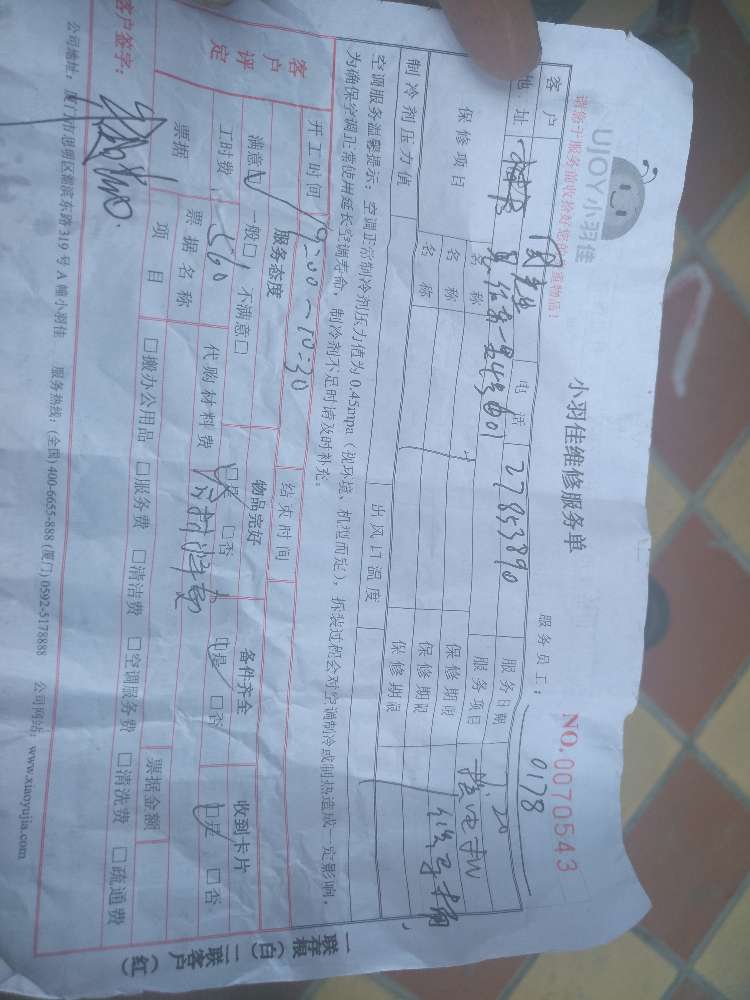 UJOY小羽佳
小羽佳维修服务单
NO.0070543
服务员工: 0178
客户 电话 27853890 服务日期 7.20
地址 服务项目
保修项目 名称 保修期限
名称 保修期限
名称 保修期限
制冷剂压力值 出风口温度
空调服务温馨提示: 空调正常制冷剂压力值为0.45mpa (视环境、机型而定), 拆装过程会对空调制冷或制热造成一定影响,
为确保空调正常使用延长空调寿命, 制冷剂不足时请及时补充。
开工时间 9:00-10:30 结束时间
客户评定 服务态度 物品完好 备件齐全 收到卡片
满意☑ 一般□ 不满意□ □是 □否 □是 □否 □是 □否
工时费: 560 代购材料费
票据 票据名称 票据金额
项目 □搬办公用品 □服务费 □清洁费 □空调服务费 □清洗费 □疏通费
客户签字:
公司地址: 厦门市思明区湖滨东路319号A幢小羽佳 服务热线: (全国) 400-6655-888 (厦门) 0592-5178888 公司网站: www.xiaoyujia.com
一联存根 (白) 二联客户 (红)